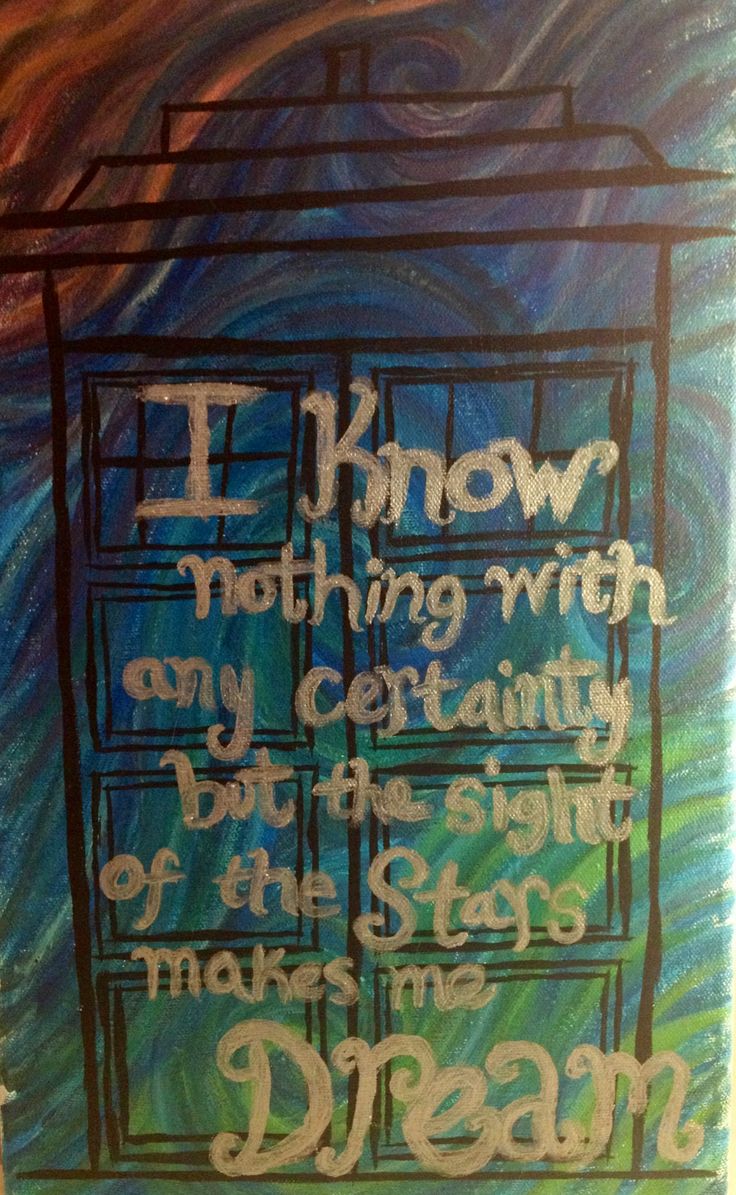 I Know
nothing with
any certainty
but the sight
of the Stars
makes me
Dream